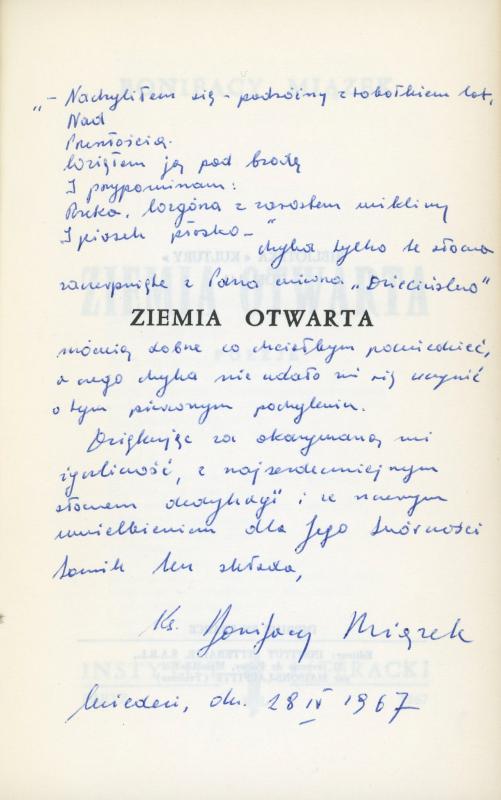 „– Nachyliłem się – podróżny z tobołkiem lat,
Nad
Przeszłością.
Wziąłem ją pod brodę
I przypominam:
Rzeka, wzgórza z zarostem wikliny
I piasek płasko –"
chyba tylko te słowa
zaczerpnięte z Pana „Dzieciństwo"
ZIEMIA OTWARTA
mówią dobrze co chciałbym powiedzieć,
a czego chyba nie udało mi się uczynić
o tym pierwszym pochyleniu.
Dziękując za okazywaną mi
życzliwość, z najserdeczniejszym
słowem dedykacji i ze szczerym
uwielbieniem dla Jego twórczości
tomik ten składa,
Ks. Bonifacy Miązek
Wiedeń, dn. 28 IV 1967